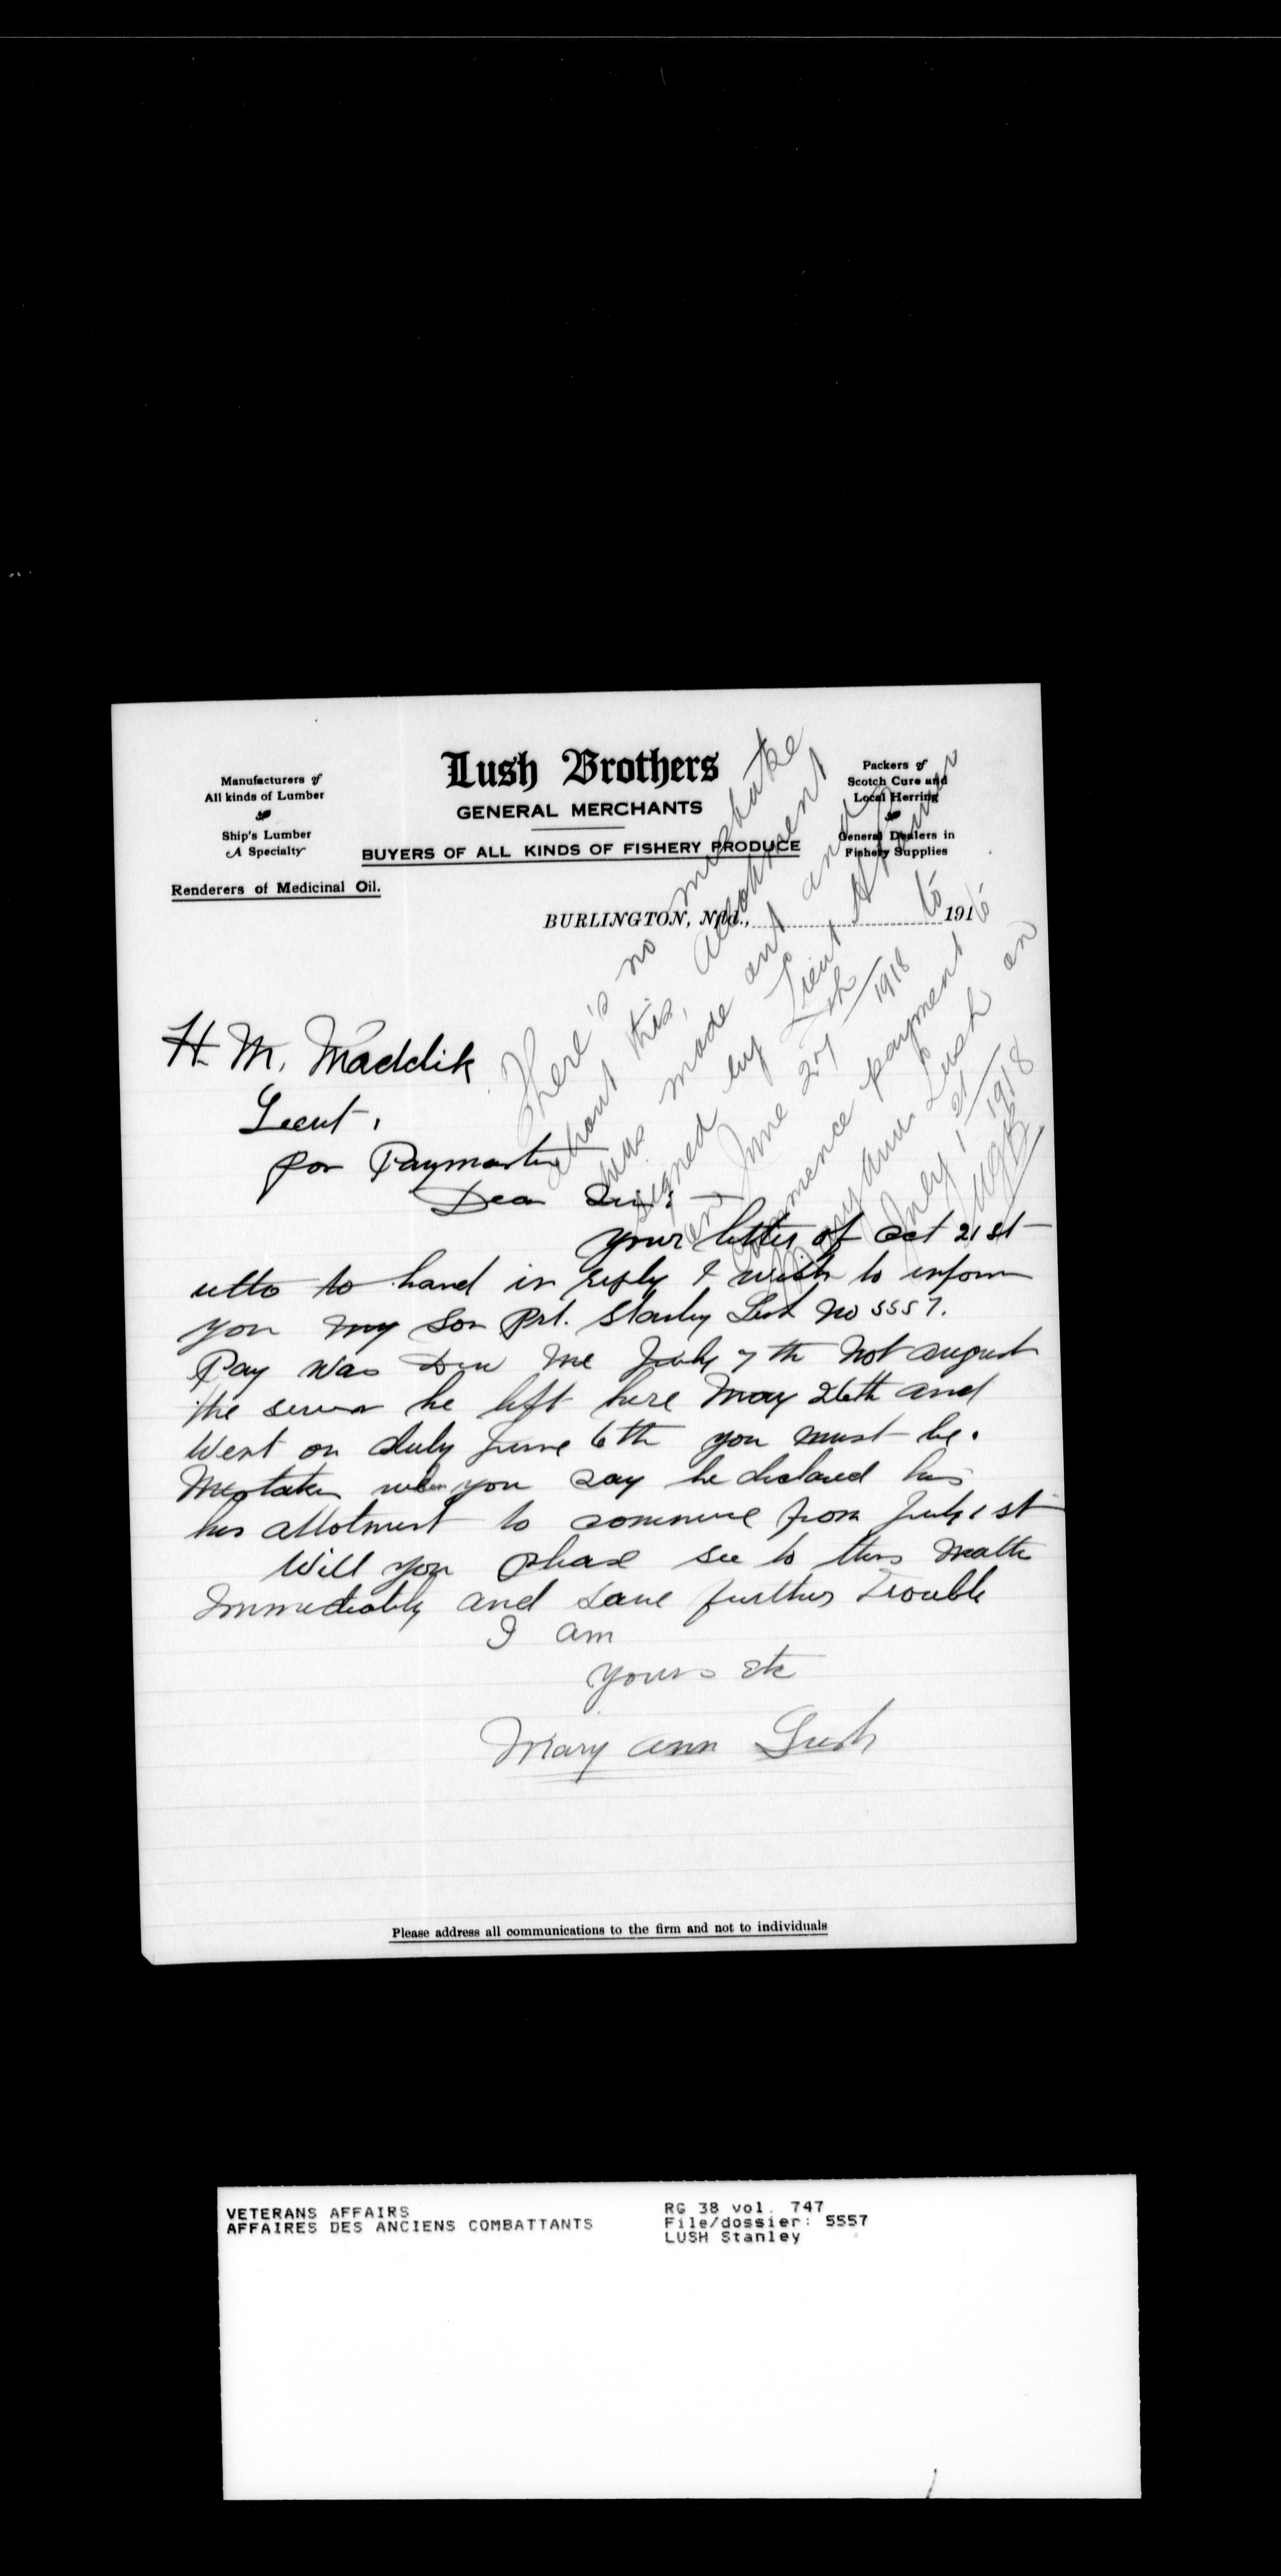 Lush Brothers
GENERAL MERCHANTS
BUYERS OF ALL KINDS OF FISHERY PRODUCE
Manufacturers of
All kinds of Lumber
Ship's Lumber
A Specialty
Renderers of Medicinal Oil.
Packers of
Scotch Cure and
Local Herring
General Dealers in
Fishery Supplies
BURLINGTON, Nfld., 191
There's no mistake
about this, Allotment
was made out and
signed by Lieut
on June 27th 1918 to
commence payment to
Mary Ann Lush on
July 1st 1918
H. M. Maddik
Lieut,
for Paymaster
Dear Sir:
your letter of Oct 21st
ulto to hand in reply I wish to inform
you my Son Prt. Stanley Lush No 5557.
Pay was Due me July 7th Not august
the he left here May 26th and
Went on duly June 6th you must be.
Mistaken when you say he declared his
his allotment to commence from July 1st
Will you please see to this matter
Immediately and save further Trouble
I am
yours etc
Mary ann Lush
Please address all communications to the firm and not to individuals
VETERANS AFFAIRS
AFFAIRES DES ANCIENS COMBATTANTS
RG 38 vol. 747
File/dossier: 5557
LUSH Stanley